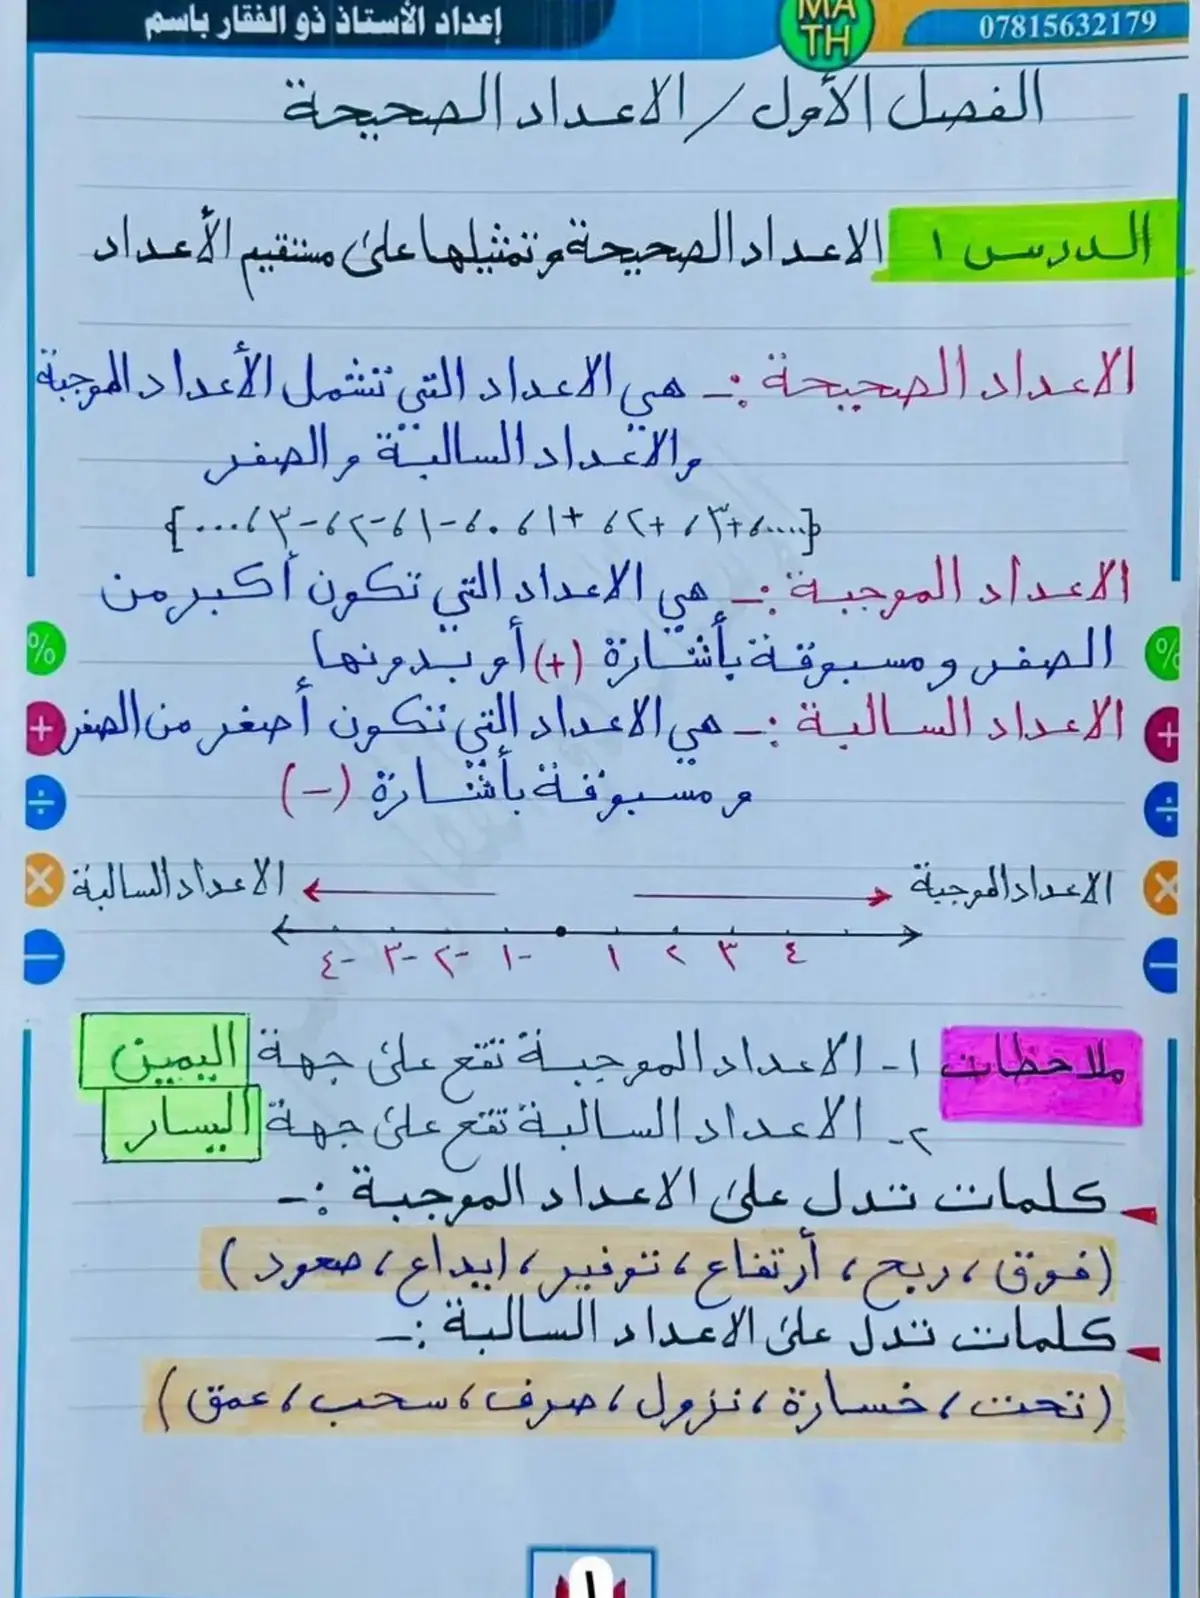 إعداد الأستاذ ذو الفقار باسم
MA
TH
07815632179
الفصل الأول / الاعداد الصحيحة
الدرس ١ الاعداد الصحيحة وتمثيلها على مستقيم الأعداد
الاعداد الصحيحة :- هي الاعداد التي تشمل الأعداد الموجبة
والاعداد السالبة والصفر
{....،+٣، +٢، +١، ٠، -١، -٢، -٣، ...}
الاعداد الموجبة :- هي الاعداد التي تكون أكبر من
الصفر ومسبوقة بأشارة (+) أو بدونها
الاعداد السالبة :- هي الاعداد التي تكون أصغر من الصفر
ومسبوقة بأشارة (-)
الاعداد الموجبة
الاعداد السالبة
-٤ -٣ -٢ -١ ١ ٢ ٣ ٤
ملاحظات ١- الاعداد الموجبة تقع على جهة اليمين
٢- الاعداد السالبة تقع على جهة اليسار
كلمات تدل على الاعداد الموجبة :-
(فوق، ربح، أرتفاع، توفير، ايداع، صعود)
كلمات تدل على الاعداد السالبة :-
(تحت، خسارة، نزول، صرف، سحب، عمق)
١